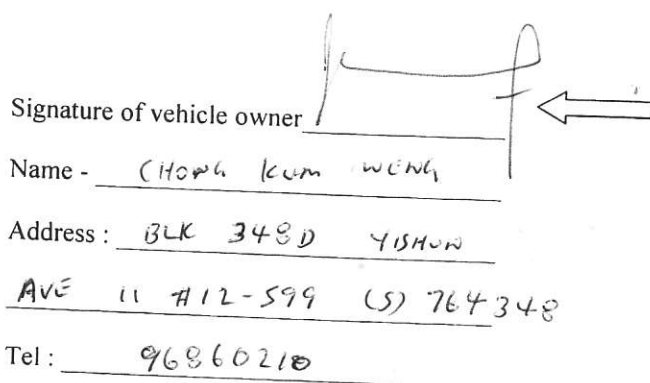 Signature of vehicle owner
Name - CHONG KUM WENG
Address : BLK 348D YISHUN
AVE 11 #12-599 (S) 764348
Tel : 96860210